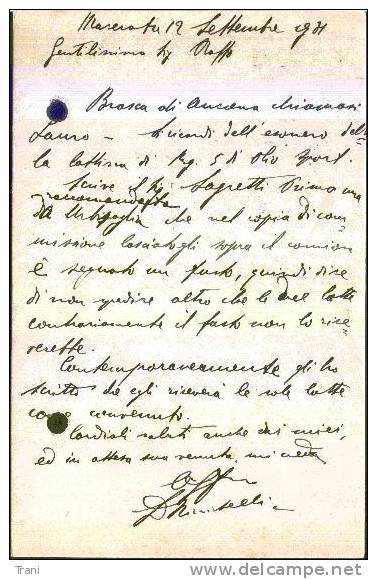 Macerata 12 Settembre 931
Gentilissimo Sig Raffo
Brasca di Ancona chiamasi
Lauro – Si ricordi dell'esonero del=
la lattina di Kg. 5 di Olio Sport.
Scrive il Sig Sagretti Primo una
raccomandata
da Urbisaglia che nel copia di com
missione lasciatogli sopra il
è segnato un fusto, quindi dice
di non spedire altro che le due latte
contrariamente il fusto non lo rice
verebbe.
Contemporaneamente gli ho
scritto che egli riceverà le sole latte
come convenuto.
Cordiali saluti anche dai miei,
ed in attesa sua venuta mi creda
Trani
delcampe.net